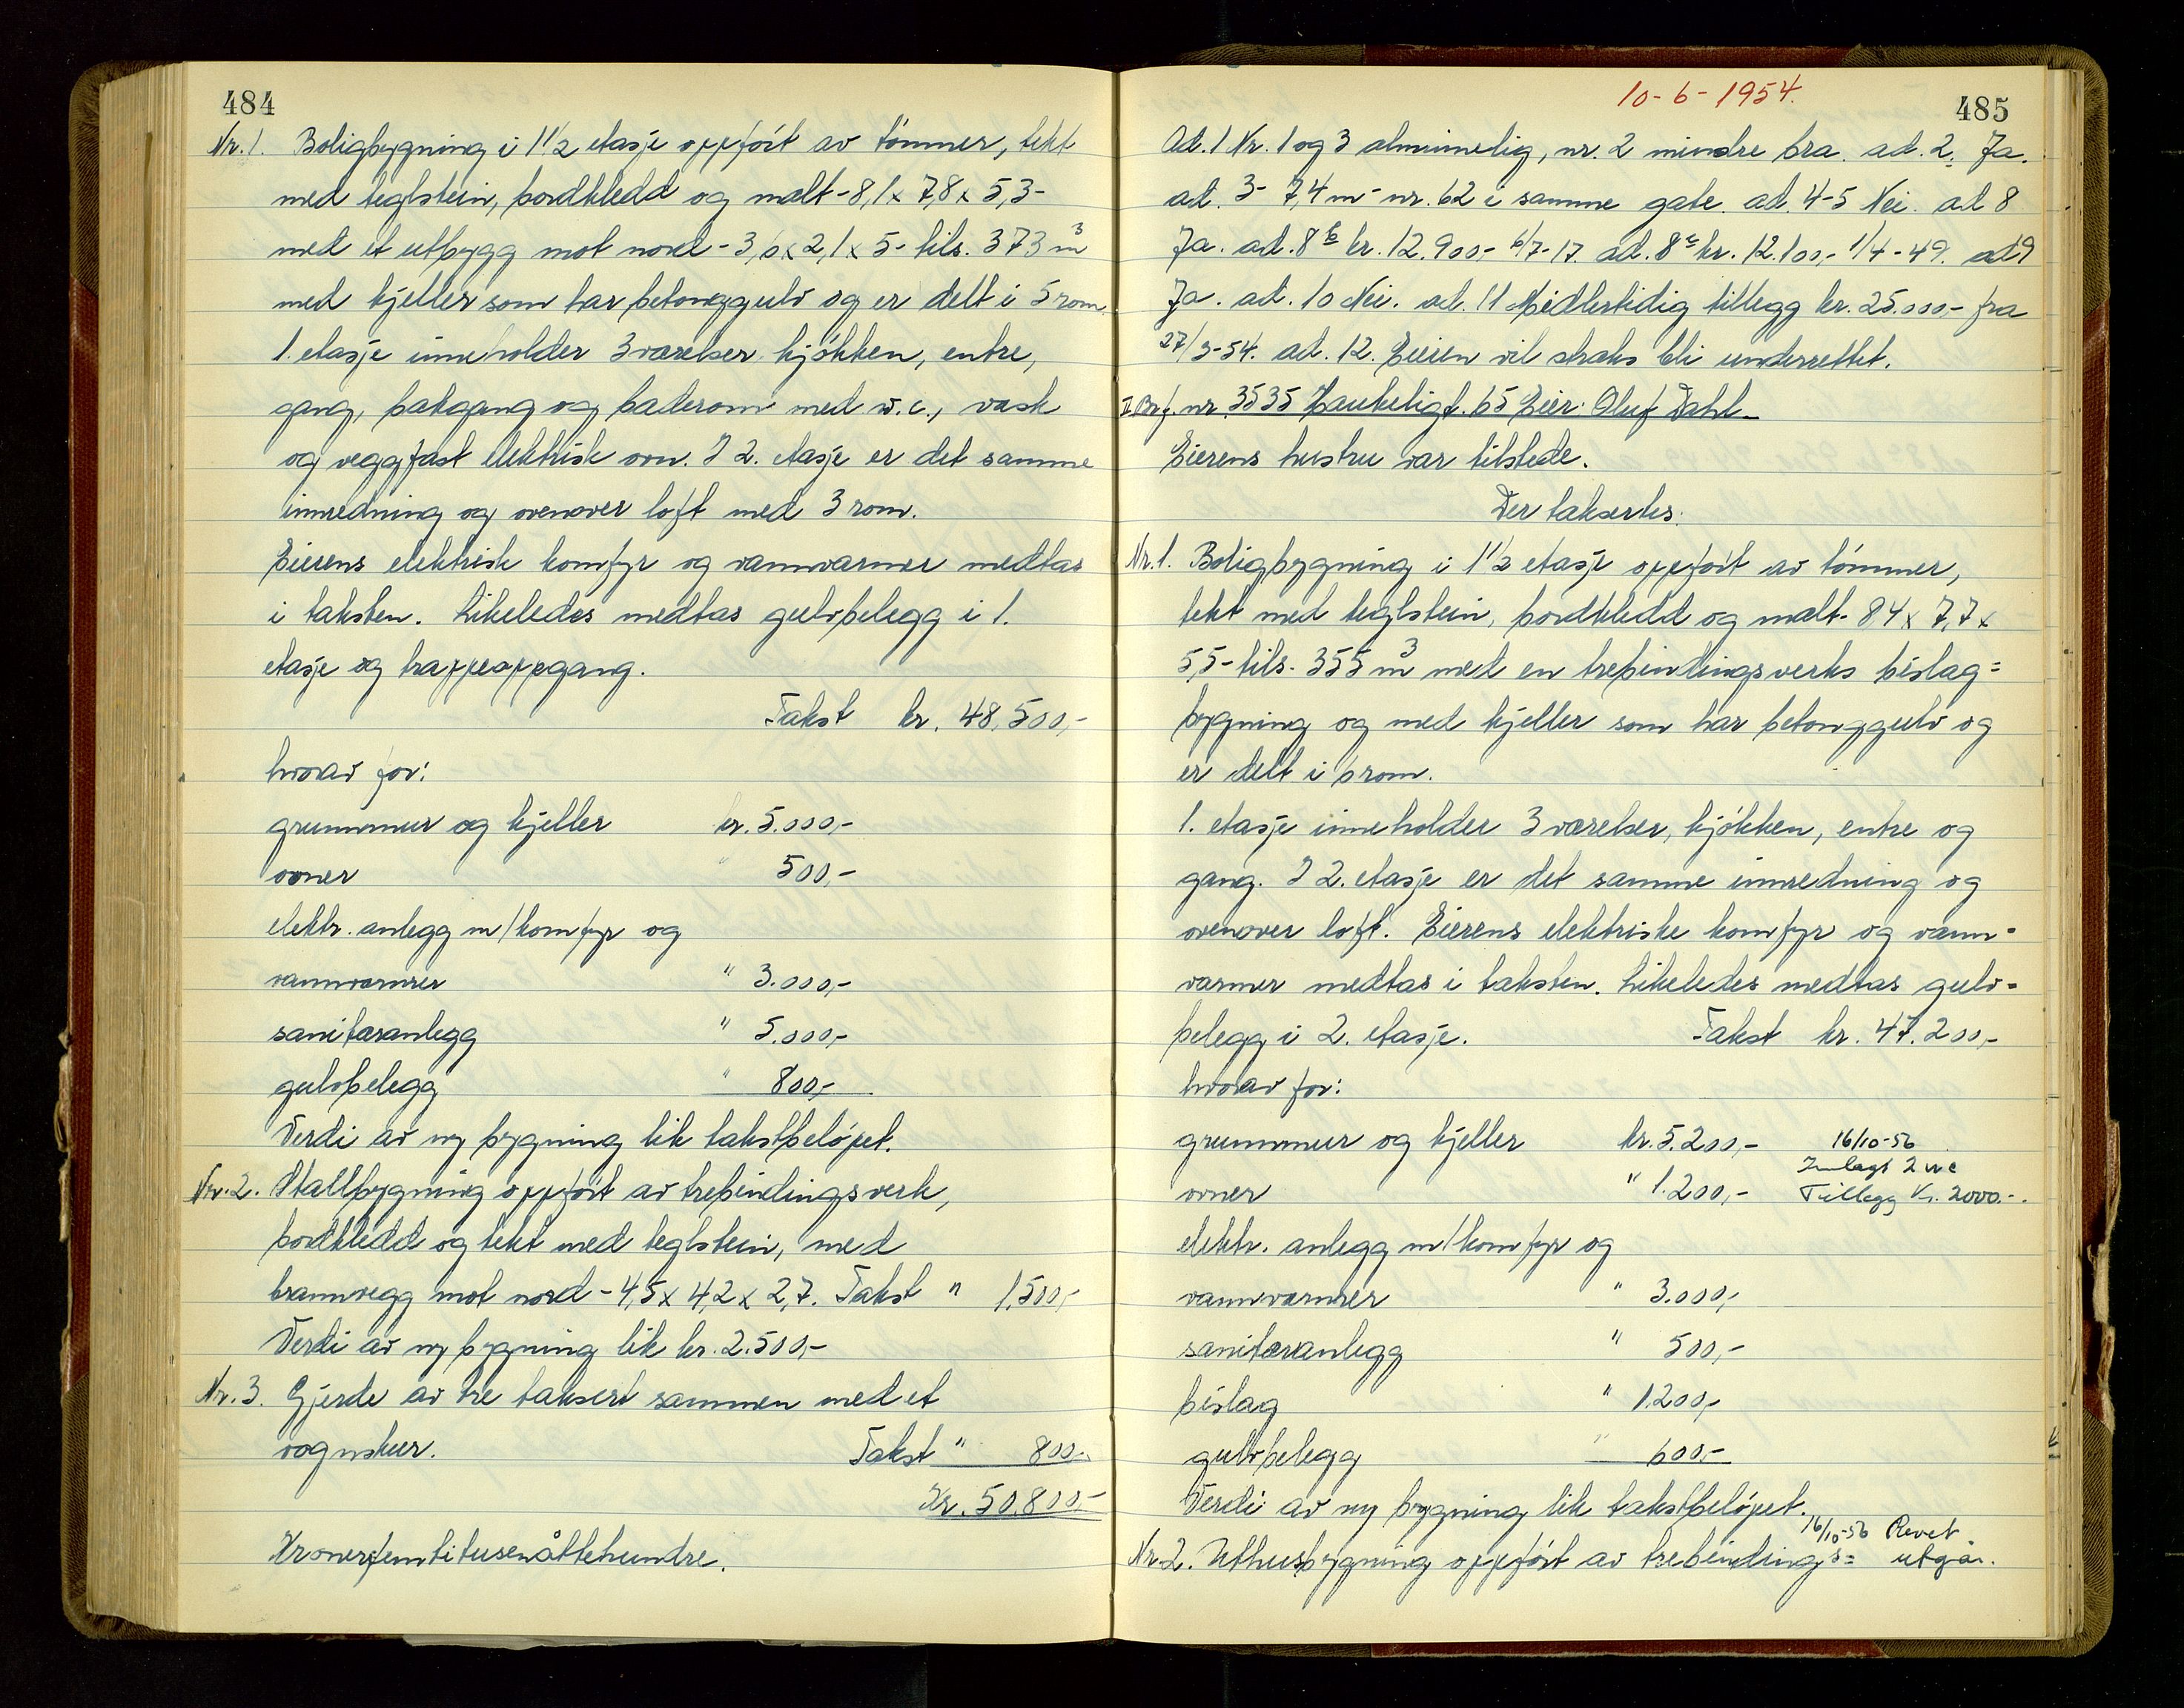 484
Nr. 1. Boligbygning i 1 1/2 etasje oppført av tømmer, tekt
med teglstein, bordkledd og malt - 8,1 x 7,8 x 5,3 -
med et utbygg mot nord - 3,6 x 2,1 x 5 - tils. 373 m³
med kjeller som har betonggulv og er delt i 5 rom.
1. etasje inneholder 3 værelser, kjøkken, entre,
gang, bakgang og baderom med w.c., vask
og veggfast elektrisk ovn. I 2. etasje er det samme
innredning og ovenover loft med 3 rom.
Eierens elektrisk komfyr og vannvarmer medtas
i taksten. Likeledes medtas gulvbelegg i 1.
etasje og trappeoppgang.
Takst kr. 48.500,-
hvorav for:
grunnmur og kjeller kr. 5.000,-
ovner " 500,-
elektr. anlegg m/komfyr og
vannvarmer " 3.000,-
sanitæranlegg " 5.000,-
gulvbelegg " 800,-
Verdi av ny bygning lik takstbeløpet.
Nr. 2. Stallbygning oppført av trebindingsverk,
bordkledd og tekt med teglstein, med
brannvegg mot nord - 4,5 x 4,2 x 2,7. Takst " 1.500,-
Verdi av ny bygning lik kr. 2.500,-
Nr. 3. Gjerde av tre taksert sammen med et
vognskur. Takst " 800,-
Kr. 50.800,-
Kronerfemtitusenåttehundre.
10-6-1954.
485
Ad. 1 Nr. 1 og 3 alminnelig, nr. 2 mindre bra. ad. 2. Ja.
ad. 3- 7,4 m - nr. 62 i samme gate. ad. 4-5 Nei. ad 8
Ja. ad. 8 b kr. 12.900,- 6/7-17. ad. 8 c kr. 12.100,- 1/4-49. ad 9
Ja. ad. 10 Nei. ad. 11 Midlertidig tillegg kr. 25.000,- fra
27/3-54. ad. 12. Eieren vil straks bli underrettet.
II. Brf. nr. 3535 Haukeligt. 65 Eier: Oluf Dahl -
Eierens hustru var tilstede.
Der taksertes:
Nr. 1. Boligbygning i 1 1/2 etasje oppført av tømmer,
tekt med teglstein, bordkledd og malt - 8,4 x 7,7 x
5,5 - tils. 355 m³ med en trebindingsverks bislag=
bygning og med kjeller som har betonggulv og
er delt i 6 rom.
1. etasje inneholder 3 værelser, kjøkken, entre og
gang. I 2. etasje er det samme innredning og
ovenover loft. Eierens elektriske komfyr og vann=
varmer medtas i taksten. Likeledes medtas gulv=
belegg i 2. etasje. Takst kr. 47.200,-
hvorav for:
grunnmur og kjeller kr. 5.200,- 16/10-56
Innlagt 2 wc
ovner " 1.200,- Tillegg Kr. 2000.-
elektr. anlegg m/komfyr og
vannvarmer " 3.000,-
sanitæranlegg " 500,-
bislag " 1.200,-
gulvbelegg " 600,-
Verdi av ny bygning lik takstbeløpet.
16/10-56 Revet
Nr. 2. Uthusbygning oppført av trebindings= utgår.